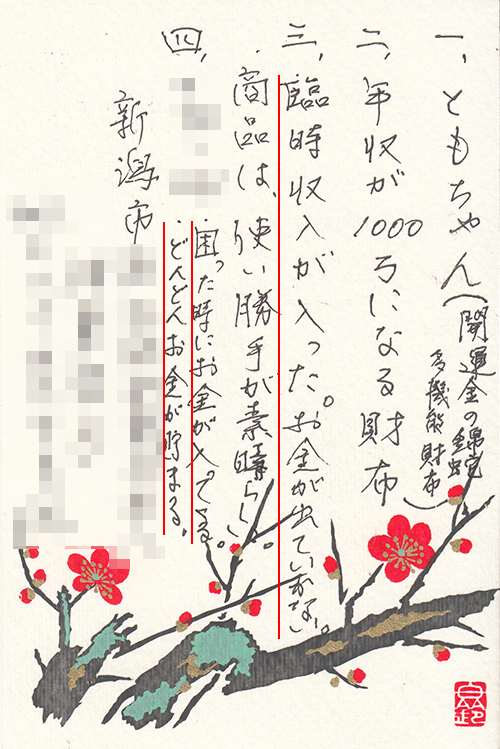 一、ともちゃん(開運金の錦蛇
多機能財布)
二、年収が1000万になる財布
三、臨時収入が入った。お金が出ていかない。
・商品は、使い勝手が素晴らしい。
四、
・困った時にお金が入ってくる。
・どんどんお金が貯まる。
新潟市